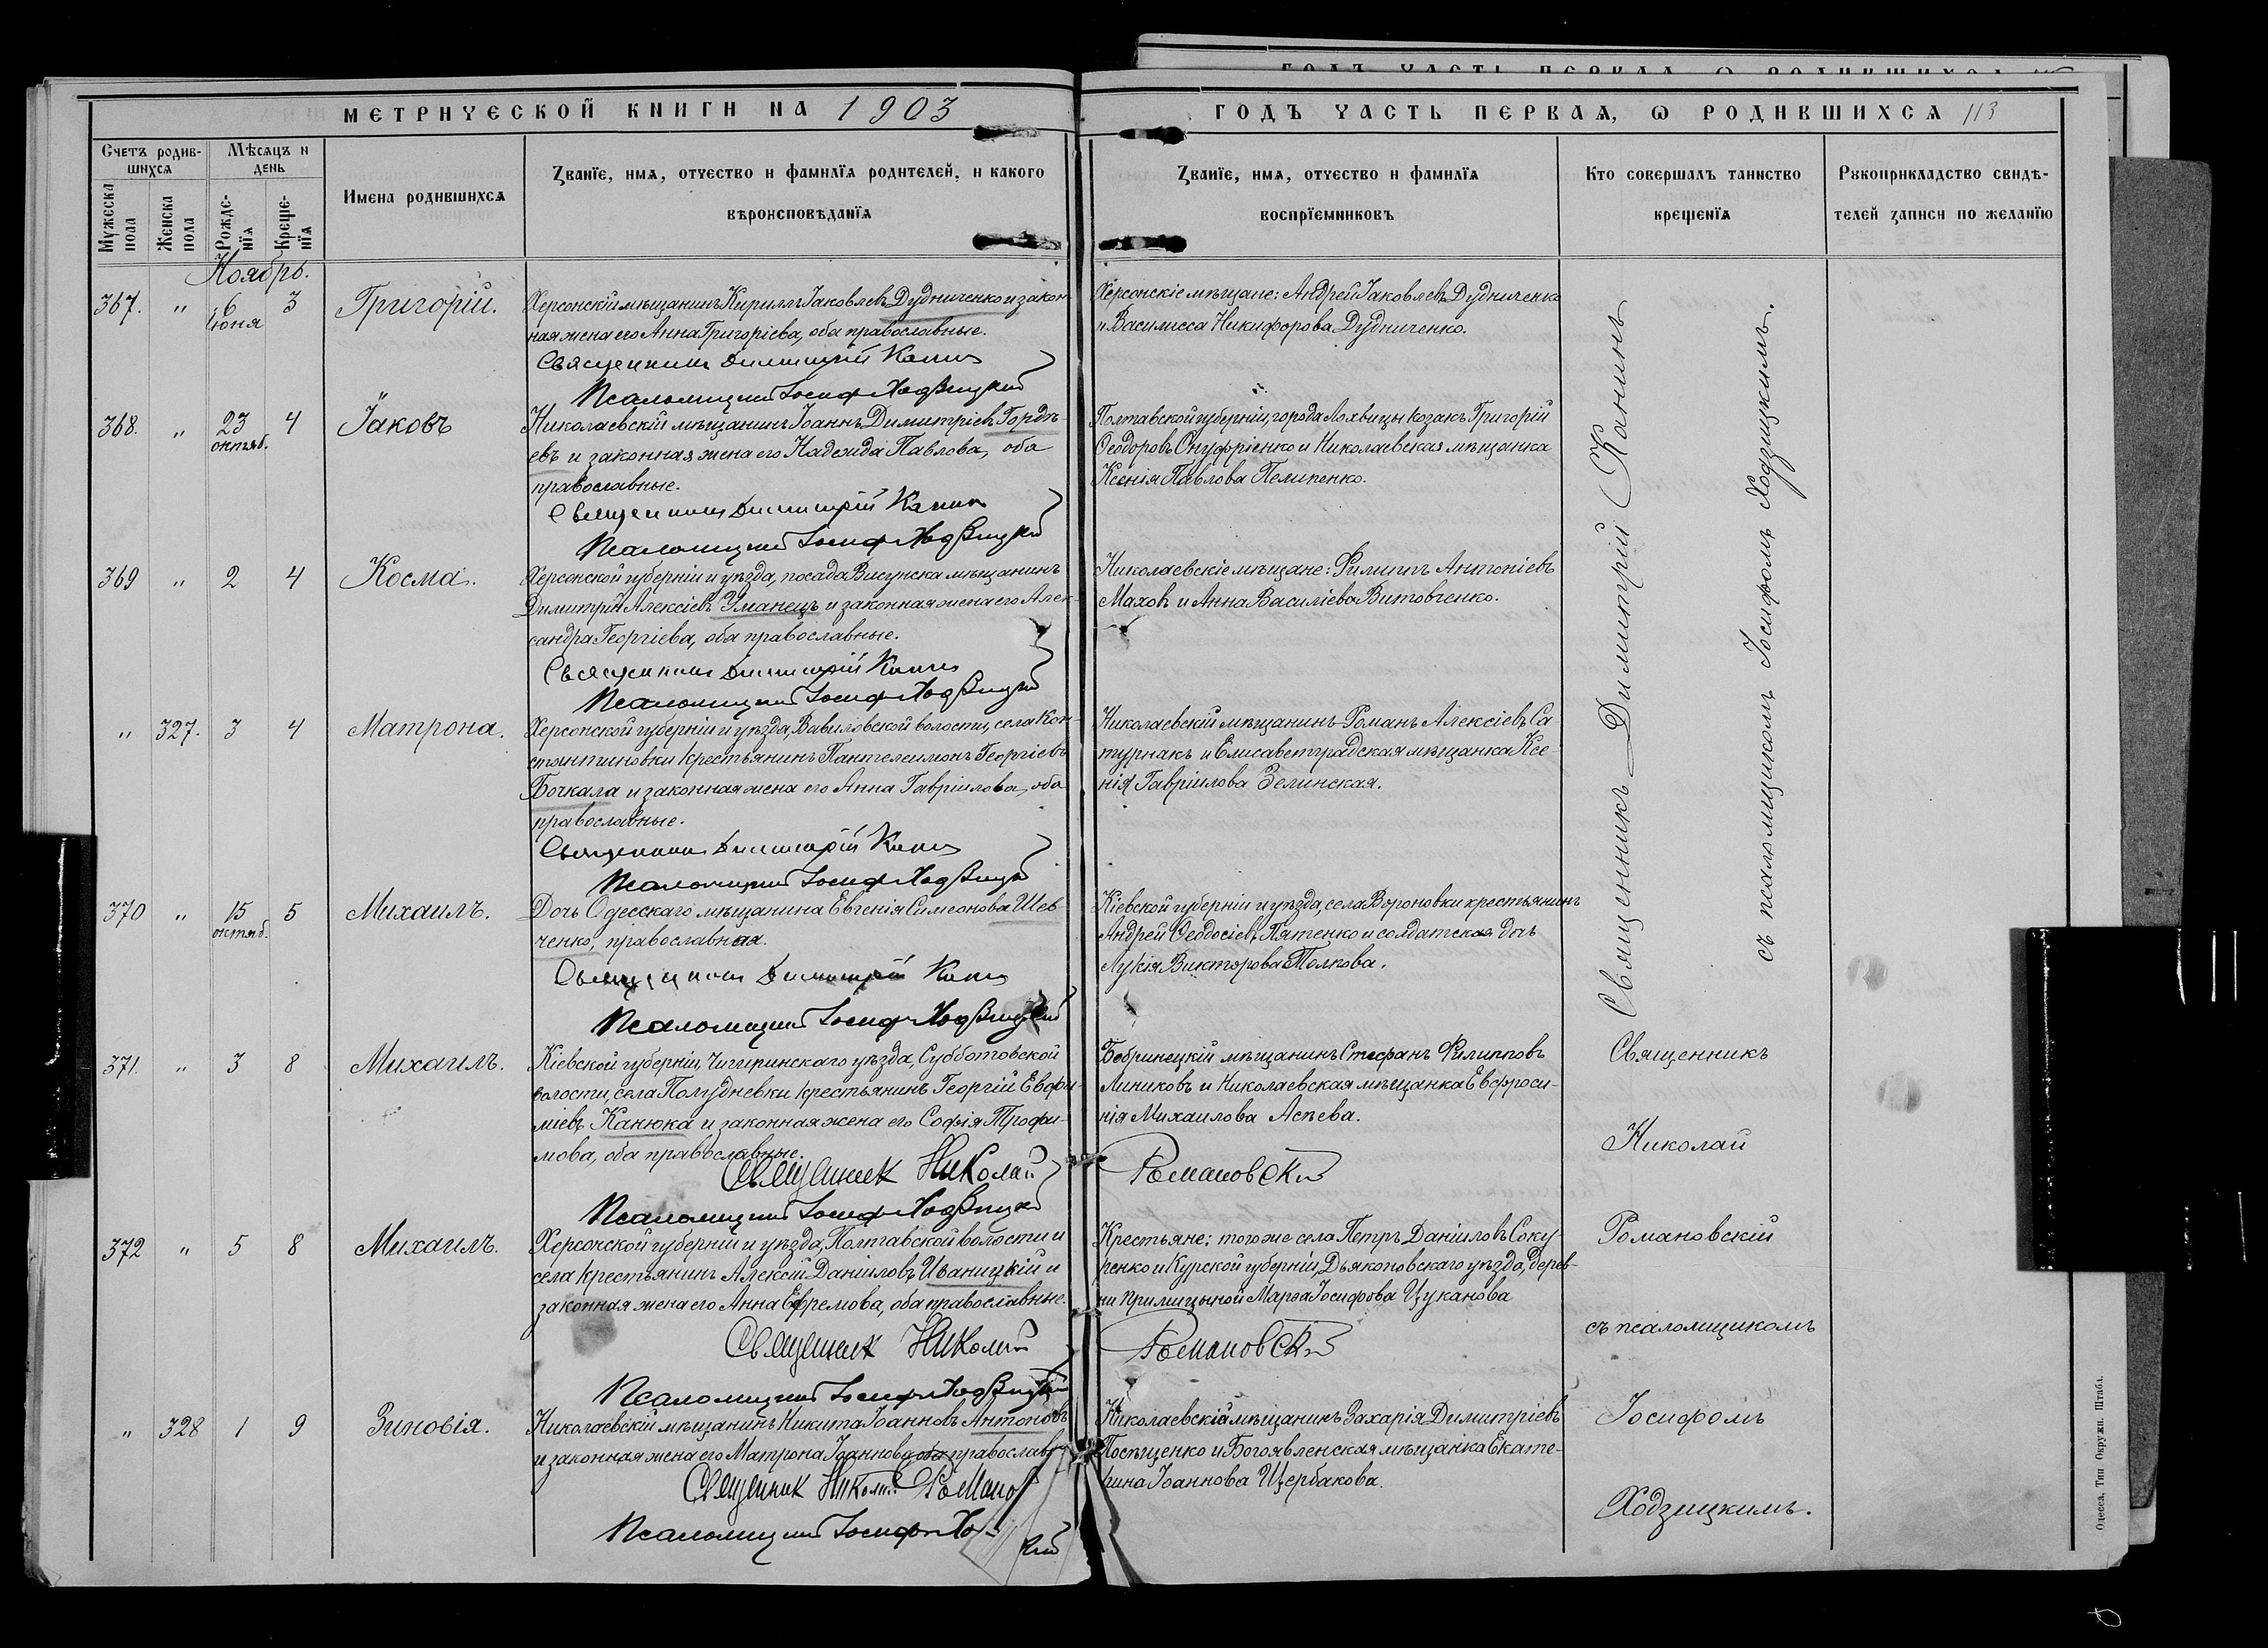 МЕТРИЧЕСКОЙ КНИГИ НА 1903
ГОДЪ ЧАСТЬ ПЕРВАЯ, Ѡ РОДИВШИХСЯ 113
Счетъ родив-
шихся
Мѣсяцъ и
день
Мужеска
пола
Женска
пола
Рожде-
нїя
Креще-
нїя
Имена родившихся
Званїе, имя, отчество и фамилїя родителей, и какого
вѣроисповѣданїя
Званїе, имя, отчество и фамилїя
воспрїемниковъ
Кто совершалъ таинство
крещенїя
Рукоприкладство свидѣ-
телей записи по желанїю
Ноябрь.
367. " 6 3 Григорій.
іюня
Херсонскій мѣщанинъ Кириллъ Іаковлевъ Дудниченко и закон-
ная жена его Анна Григоріева, оба православные.
Священникъ Димитрій Канинъ
Псаломщикъ Іосифъ Ходзицкій
Херсонскіе мѣщане: Андрей Іаковлевъ Дудниченко
и Василисса Никифорова Дудниченко.
368. " 23 4 Іаковъ
октяб.
Николаевскій мѣщанинъ Іоаннъ Димитріевъ Гордѣ-
евъ и законная жена его Надежда Павлова, оба
православные.
Священникъ Димитрій Канинъ
Псаломщикъ Іосифъ Ходзицкій
Полтавской губерніи, города Лохвицы козакъ Григорій
Ѳеодоровъ Онуфріенко и Николаевская мѣщанка
Ксенія Павлова Пелипенко.
369 " 2 4 Косма.
Херсонской губерніи и уѣзда, посада Висунска мѣщанинъ
Димитрій Алексіевъ Уманецъ и законная жена его Алек-
сандра Георгіева, оба православные.
Священникъ Димитрій Канинъ
Псаломщикъ Іосифъ Ходзицкій
Николаевскіе мѣщане: Филиппъ Антоніевъ
Маховъ и Анна Василіева Витовченко.
" 327. 3 4 Матрона.
Херсонской губерніи и уѣзда, Вавиловской волости, села Кон-
стантиновки крестьянинъ Пантелеимонъ Георгіевъ
Бочкала и законная жена его Анна Гавріилова, оба
православные.
Священникъ Димитрій Канинъ
Псаломщикъ Іосифъ Ходзицкій
Николаевскій мѣщанинъ Романъ Алексіевъ Са-
турнакъ и Елисаветградская мѣщанка Ксе-
нія Гавріилова Зелинская.
370 " 15 5 Михаилъ.
октяб.
Дочь Одесскаго мѣщанина Евгенія Симеонова Шев-
ченко, православная.
Священникъ Димитрій Канинъ
Псаломщикъ Іосифъ Ходзицкій
Кіевской губерніи и уѣзда, села Вороновки крестьянинъ
Андрей Ѳеодосіевъ Пятенко и солдатская дочь
Лукія Викторова Толкова.
Священникъ Димитрій Канинъ
съ псаломщикомъ Іосифомъ Ходзицкимъ.
371. " 3 8 Михаилъ.
Кіевской губерніи, Чигиринскаго уѣзда, Субботовской
волости, села Полудневки крестьянинъ Георгій Евфи-
міевъ Канюка и законная жена его Софія Трофи-
мова, оба православные.
Священник Николай Романовскій
Псаломщикъ Іосифъ Ходзицкій
Бобринецкій мѣщанинъ Стефанъ Филипповъ
Линиковъ и Николаевская мѣщанка Евфроси-
нія Михаилова Асѣева.
372 " 5 8 Михаилъ.
Херсонской губерніи и уѣзда, Полтавской волости и
села крестьянинъ Алексій Даніиловъ Иваницкій и
законная жена его Анна Ефремова, оба православные.
Священник Николай Романовскій
Псаломщикъ Іосифъ Ходзицкій
Крестьяне: того же села Петръ Даніиловъ Соку-
ренко и Курской губерніи, Дьяконовскаго уѣзда, дерев-
ни Прилицыной Марѳа Іосифова Цуканова
" 328 1 9 Зиновія.
Николаевскій мѣщанинъ Никита Іоанновъ Антоновъ
и законная жена его Матрона Іоаннова, оба православ
Священник Николай Романов
Псаломщикъ Іосифъ Хо кій
Николаевскій мѣщанинъ Захарія Димитріевъ
Посѣщенко и Богоявленская мѣщанка Екате-
рина Іоаннова Щербакова.
Священникъ
Николай
Романовскій
съ псаломщикомъ
Іосифомъ
Ходзицкимъ.
Одесса, Тип. Окружн. Штаба.